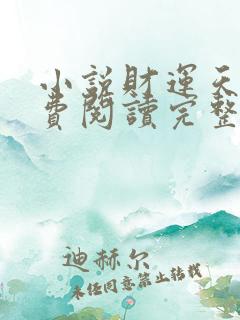 小説財運天
費閱讀完整
迪赫尔
未经同意禁止转载